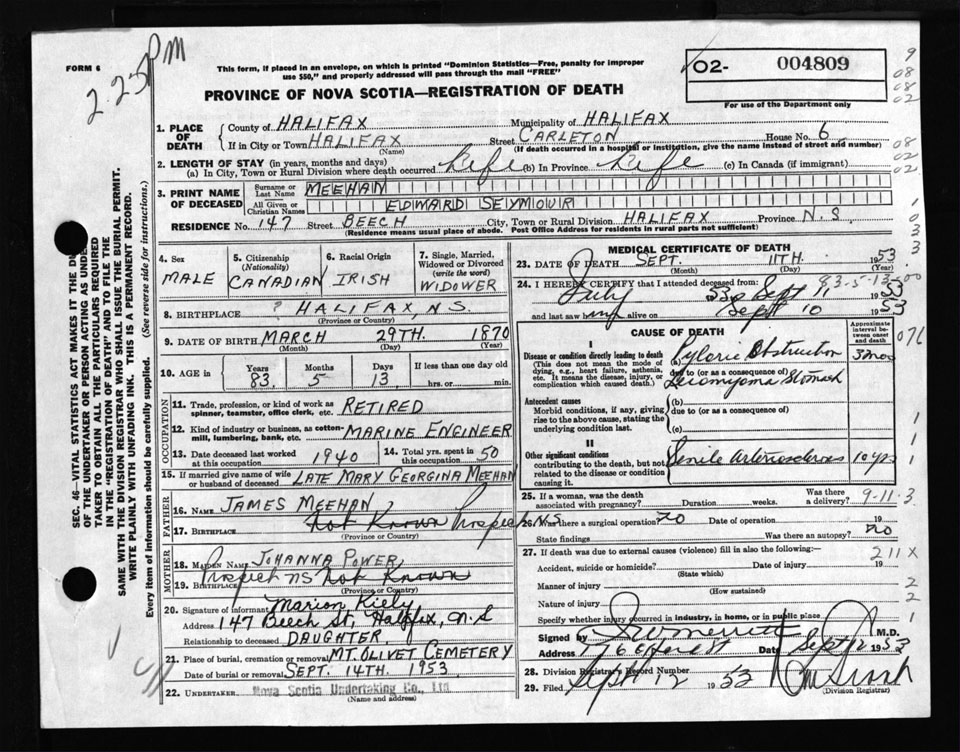 2.25 PM
FORM 6
This form, if placed in an envelope, on which is printed "Dominion Statistics—Free, penalty for improper
use $50," and properly addressed will pass through the mail "FREE"
O2- 004809
For use of the Department only
PROVINCE OF NOVA SCOTIA—REGISTRATION OF DEATH
9
08
08
02
08
02
02
1
0
3
3
SEC. 46—VITAL STATISTICS ACT MAKES IT THE DU
OF THE UNDERTAKER OR PERSON ACTING AS UNDER-
TAKER TO OBTAIN ALL THE PARTICULARS REQUIRED
IN THE "REGISTRATION OF DEATH" AND TO FILE THE
SAME WITH THE DIVISION REGISTRAR WHO SHALL ISSUE THE BURIAL PERMIT.
WRITE PLAINLY WITH UNFADING INK. THIS IS A PERMANENT RECORD.
Every item of information should be carefully supplied. (See reverse side for instructions.)
1. PLACE OF DEATH
County of HALIFAX Municipality of HALIFAX
If in City or Town HALIFAX Street CARLETON House No. 6
(Name) (If death occurred in a hospital or institution, give the name instead of street and number)
2. LENGTH OF STAY (in years, months and days)
(a) In City, Town or Rural Division where death occurred Life (b) In Province Life (c) In Canada (if immigrant)
3. PRINT NAME OF DECEASED
Surname or Last Name MEEHAN
All Given or Christian Names EDWARD SEYMOUR
RESIDENCE No. 147 Street BEECH City, Town or Rural Division HALIFAX Province N.S.
(Residence means usual place of abode. Post Office Address for residents in rural parts not sufficient)
4. Sex
MALE
5. Citizenship
(Nationality)
CANADIAN
6. Racial Origin
IRISH
7. Single, Married,
Widowed or Divorced
(write the word)
WIDOWER
8. BIRTHPLACE ? HALIFAX, N.S.
(Province or Country)
9. DATE OF BIRTH MARCH 29TH. 1870
(Month) (Day) (Year)
10. AGE in
Years 83 Months 5 Days 13
If less than one day old
hrs. or min.
OCCUPATION
11. Trade, profession, or kind of work as
spinner, teamster, office clerk, etc. RETIRED
12. Kind of industry or business, as cotton-
mill, lumbering, bank, etc. MARINE ENGINEER
13. Date deceased last worked
at this occupation 1940
14. Total yrs. spent in
this occupation 50
15. If married give name of wife
or husband of deceased LATE MARY GEORGINA MEEHAN
FATHER
16. Name JAMES MEEHAN
17. Birthplace Not Known Prospect N.S
(Province or Country)
MOTHER
18. Maiden Name JOHANNA POWER
19. Birthplace Prospect NS Not Known
(Province or Country)
20. Signature of informant Marion Kiely
Address 147 Beech St, Halifax, N.S
Relationship to deceased DAUGHTER
21. Place of burial, cremation or removal MT. OLIVET CEMETERY
Date of burial or removal SEPT. 14TH. 1953
22. UNDERTAKER Nova Scotia Undertaking Co., Ltd.
(Name and address)
MEDICAL CERTIFICATE OF DEATH
23. DATE OF DEATH SEPT. 11TH. 1953
(Month) (Day) (Year)
83-5-13-00
24. I HEREBY CERTIFY that I attended deceased from
July 53 to Sept 11 1953
and last saw him alive on Sept 10 1953
CAUSE OF DEATH
Approximate
interval between
onset and death
076
I
Disease or condition directly leading to death
(This does not mean the mode of
dying, e.g., heart failure, asthenia,
etc. It means the disease, injury, or
complication which caused death.)
(a) Pyloric Obstruction 3 mos
due to (or as a consequence of)
Leiomyoma Stomach
Antecedent causes
Morbid conditions, if any, giving
rise to the above cause, stating the
underlying condition last.
(b)
due to (or as a consequence of)
(c)
1
1
1
II
Other significant conditions
contributing to the death, but not
related to the disease or condition
causing it.
Senile Arteriosclerosis 10 yrs
25. If a woman, was the death
associated with pregnancy? Duration weeks. Was there a delivery?
9-11-3
26. Was there a surgical operation? no Date of operation 19
State findings Was there an autopsy? no
27. If death was due to external causes (violence) fill in also the following:—
211X
Accident, suicide or homicide? Date of injury 19
(State which)
Manner of injury 2
(How sustained)
Nature of injury 2
Specify whether injury occurred in industry, in home, or in public place 1
Signed by Merritt M.D.
Address Date Sept 12 1953
28. Division Registrar's Record Number
29. Filed Sept 12 1953
(Division Registrar)